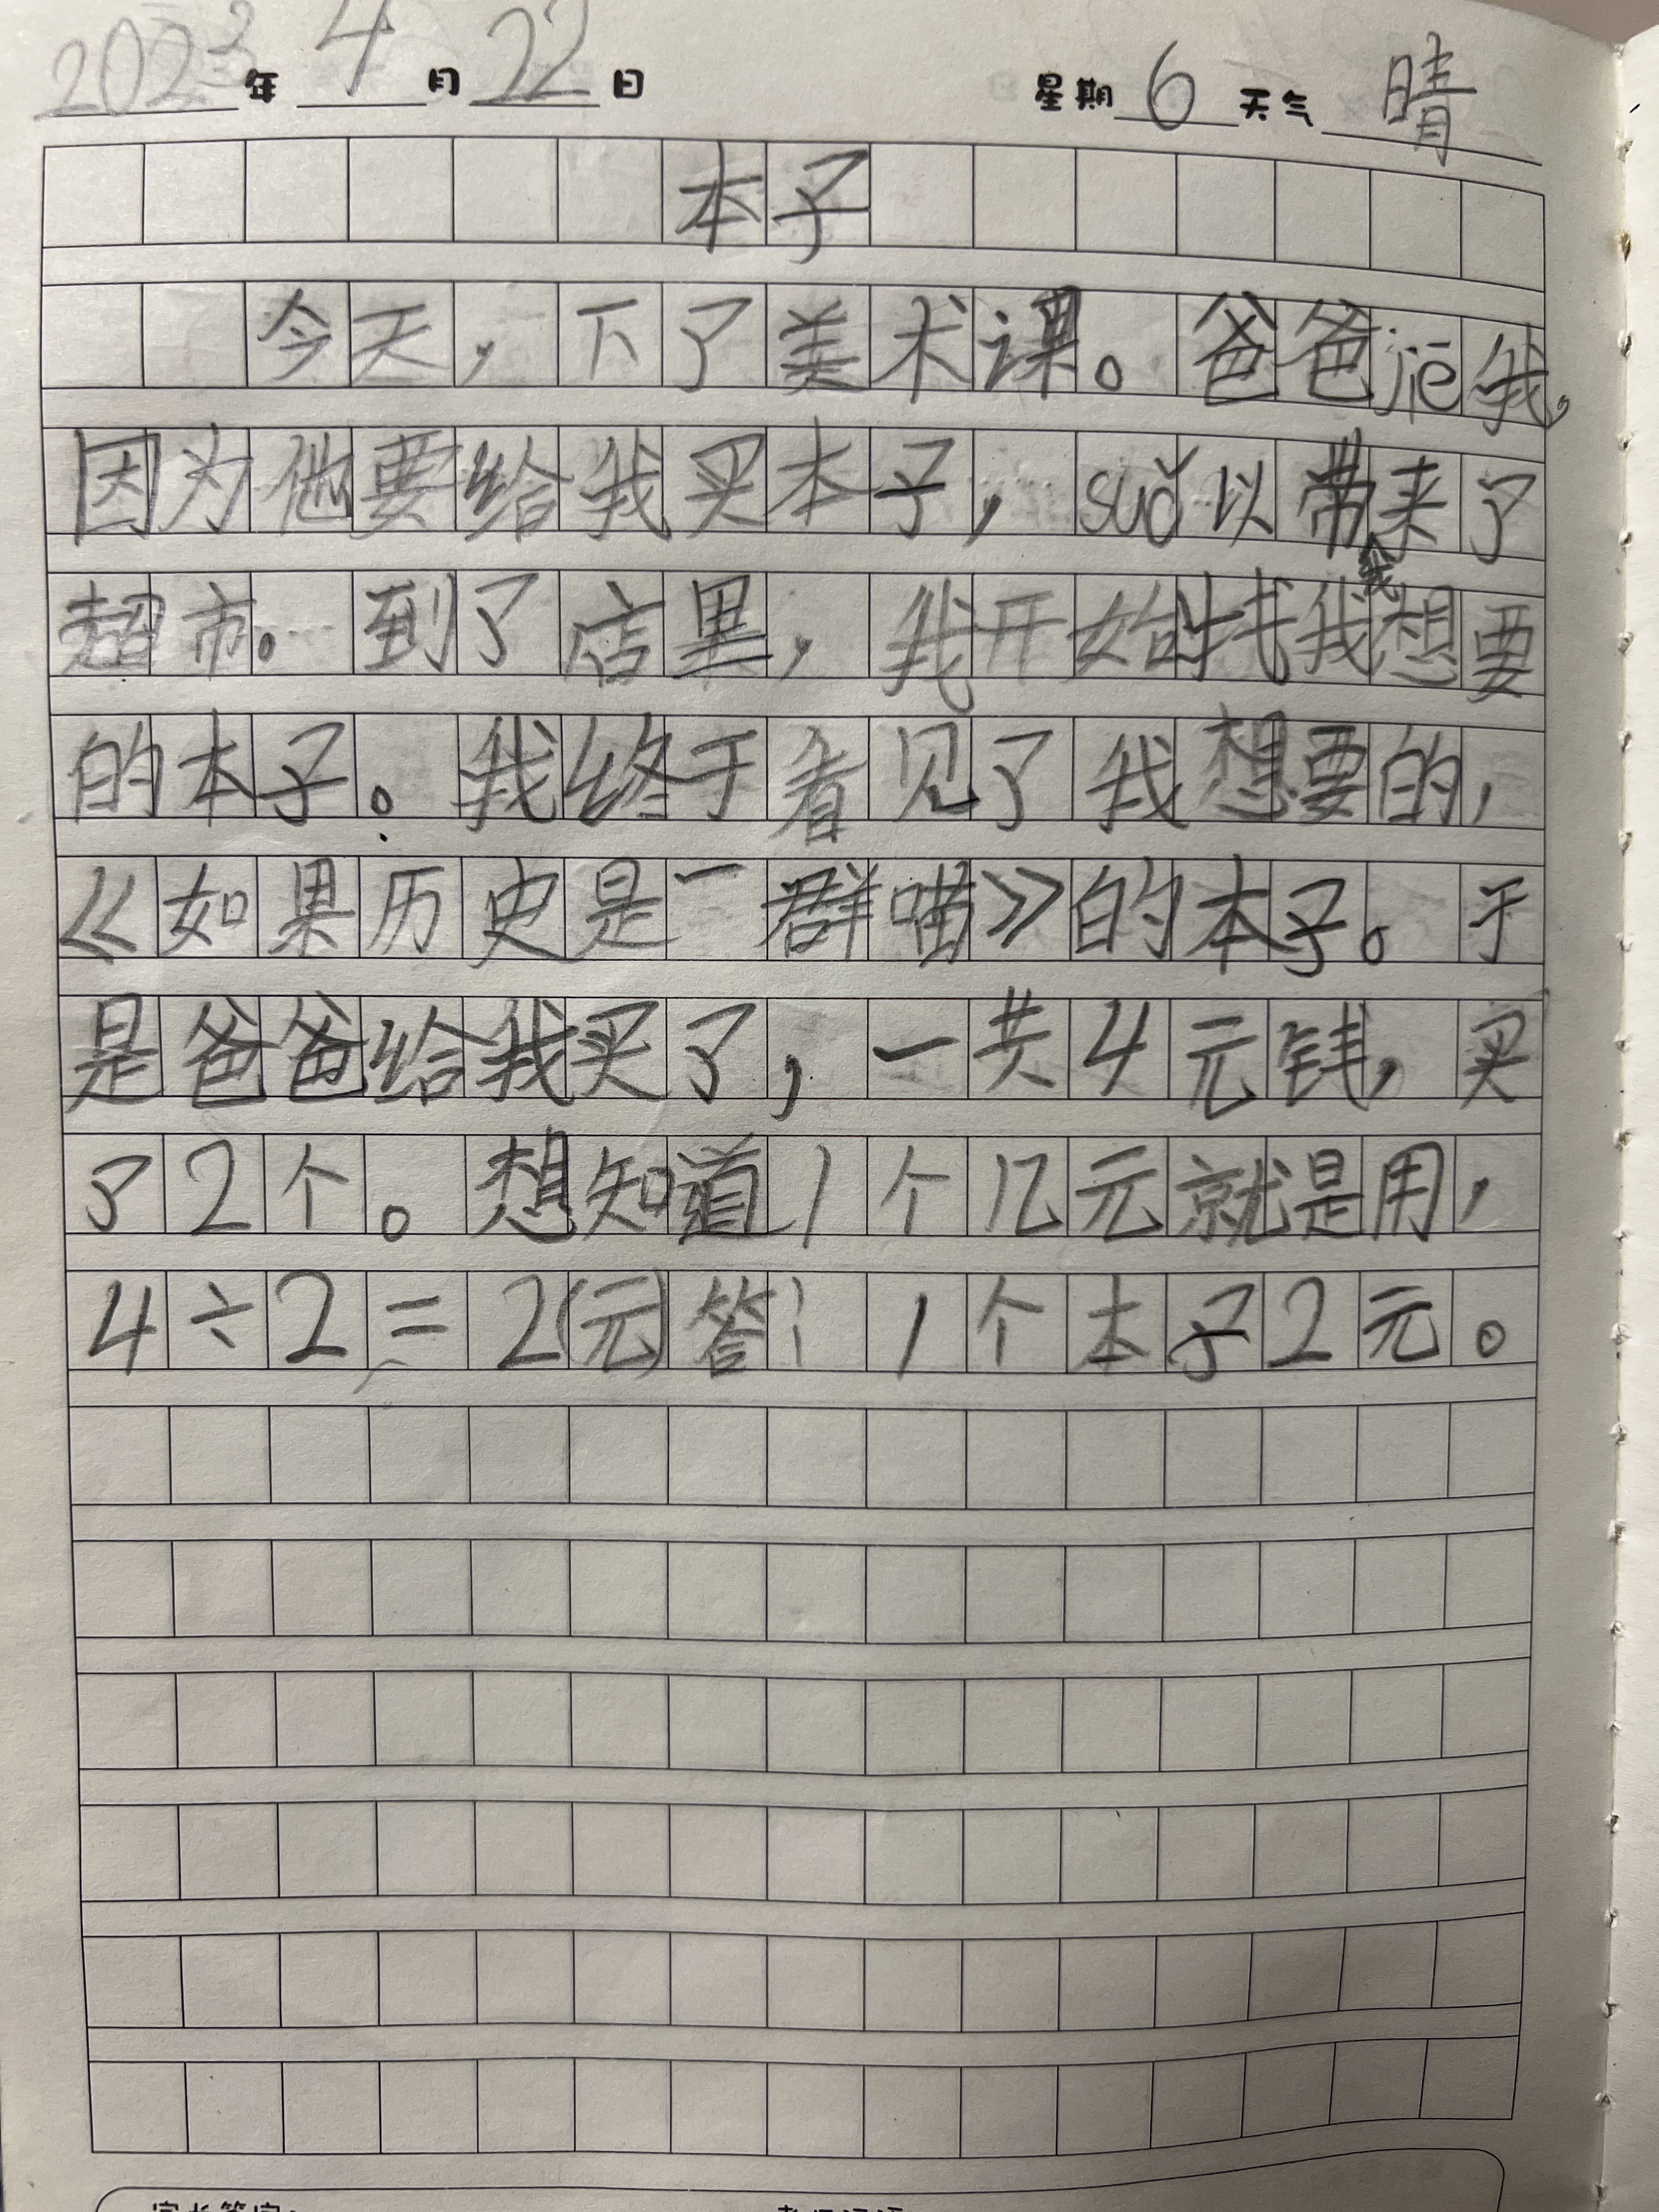 2023年4月22日 星期6天气晴
本子
今天，下了美术课。爸爸jiē我，
因为他要给我买本子，suǒ以带我来了
超市。到了店里，我开始找我想要
的本子。我终于看见了我想要的，
《如果历史是一群喵》的本子。于
是爸爸给我买了，一共4元钱，买
了2个。想知道1个几元就是用，
4÷2=2(元)答：1个本子2元。